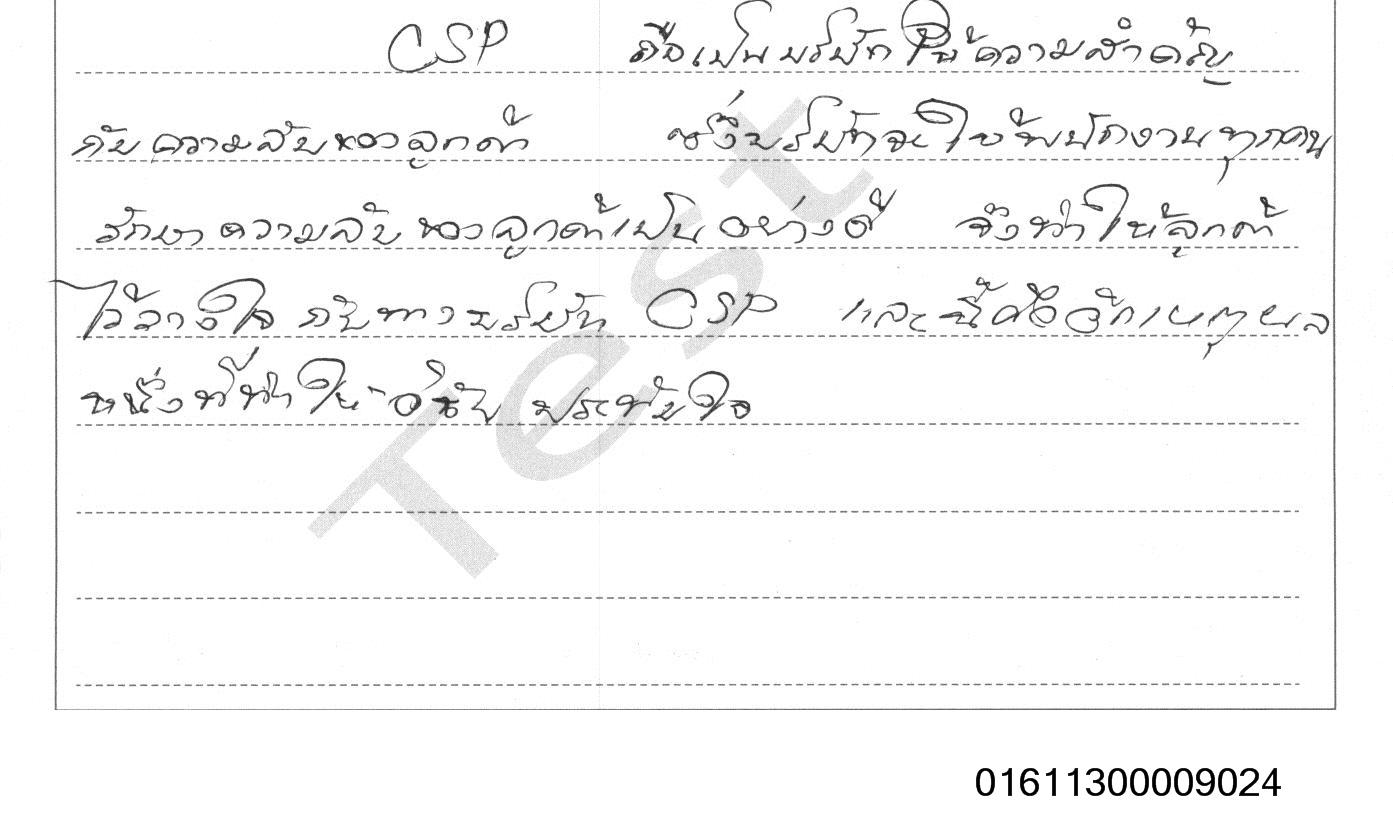 CSP ถือเป็นบริษัทให้ความสำคัญ
กับความลับของลูกค้า ซึ่งบริษัทจะให้พนักงานทุกคน
รักษาความลับของลูกค้าเป็นอย่างดี จึงทำให้ลูกค้า
ไว้วางใจกับทางบริษัท CSP และนี้คืออีกเหตุผล
หนึ่งที่ทำให้ ประทับใจ
Test
01611300009024